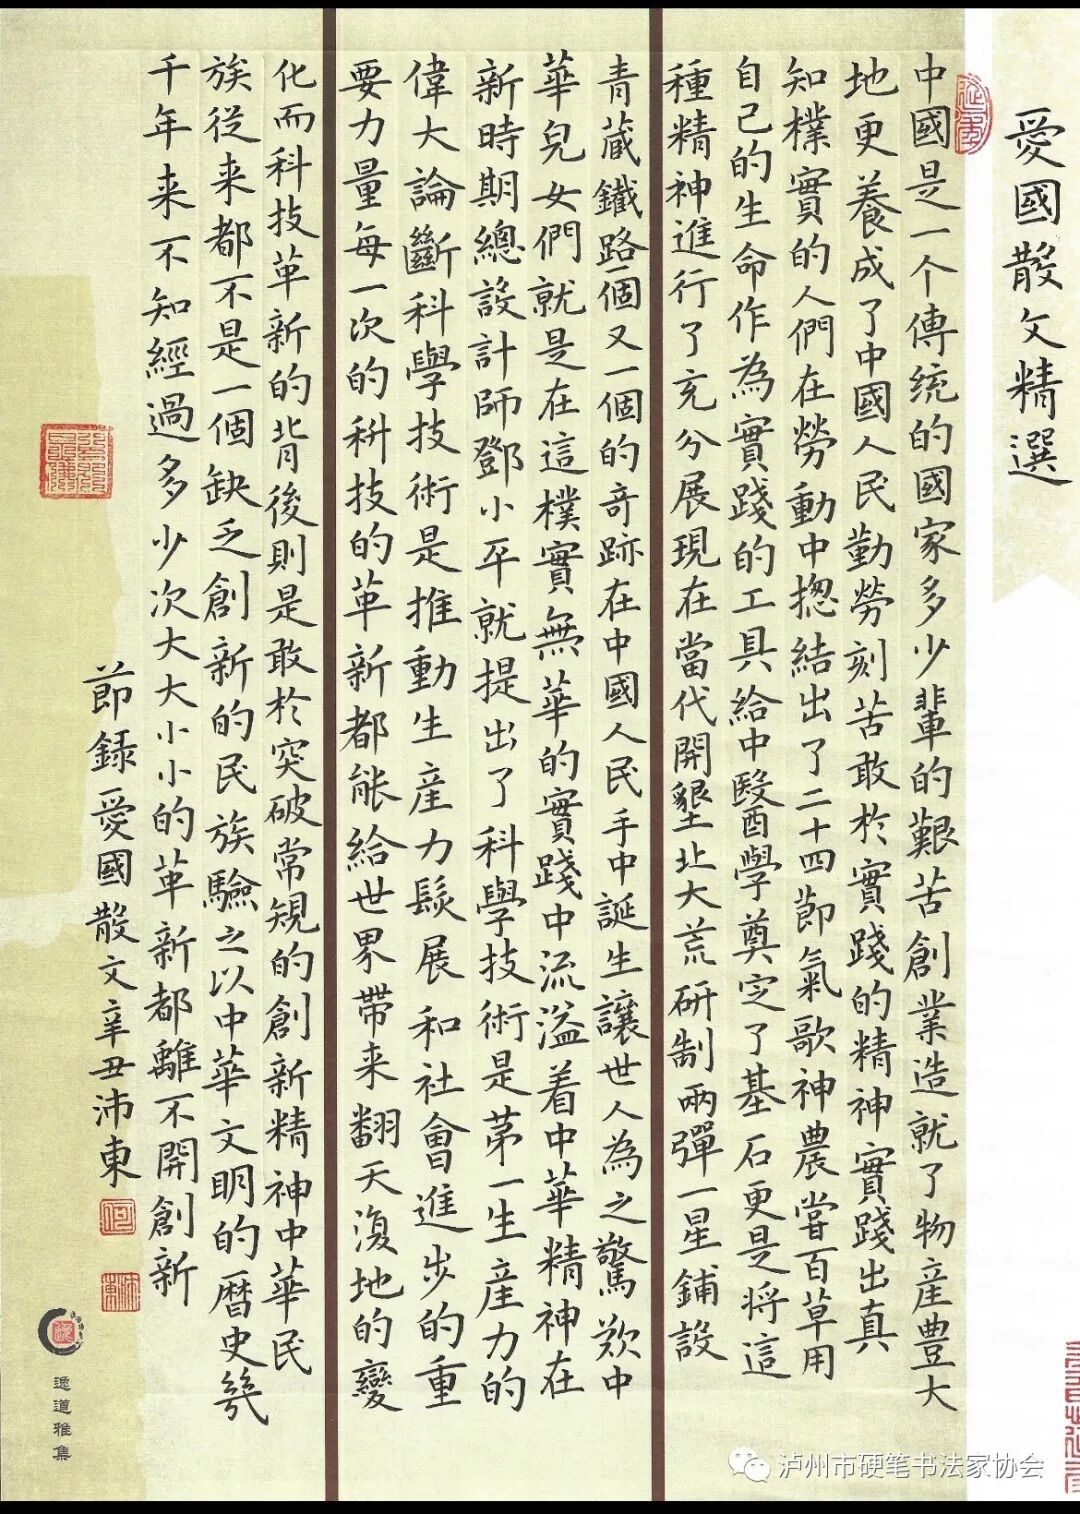 愛國散文精選
中國是一个傳統的國家多少輩的艱苦創業造就了物産豊大
地更養成了中國人民勤勞刻苦敢於實踐的精神實踐出真
知樸實的人們在勞動中揔結出了二十四節氣歌神農嘗百草用
自己的生命作為實踐的工具給中醫學奠定了基石更是将這
種精神進行了充分展現在當代開墾北大荒研制兩彈一星鋪設
青蔵鐵路一個又一個的奇跡在中國人民手中誕生讓世人為之驚歎中
華兒女們就是在這樸實無華的實踐中流溢着中華精神在
新時期總設計師鄧小平就提出了科學技術是苐一生産力的
偉大論斷科學技術是推動生産力髮展和社會進步的重
要力量每一次的科技的革新都能給世界帶来翻天復地的變
化而科技革新的背後則是敢於突破常規的創新精神中華民
族從来都不是一個缺乏創新的民族驗之以中華文明的曆史幾
千年来不知經過多少次大大小小的革新都離不開創新
節錄愛國散文辛丑沛東
逸道雅集
泸州市硬笔书法家协会